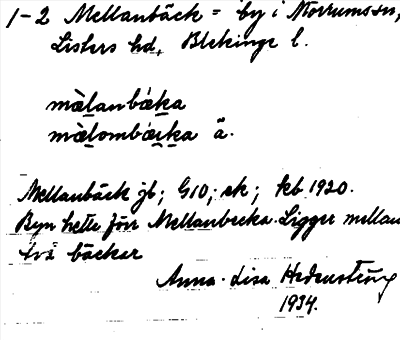 1-2 Mellanbäck = by i Morrums sn,
Listers hd, Blekinge l.
mæ̀lanbǽka
mæ̀lombǽka ä.
Mellanbäck jb; G10; sk; kb 1920.
Byn hette förr Mellanbecka. Ligger mellan
två bäckar
Anna-Lisa Hedenström
1934.